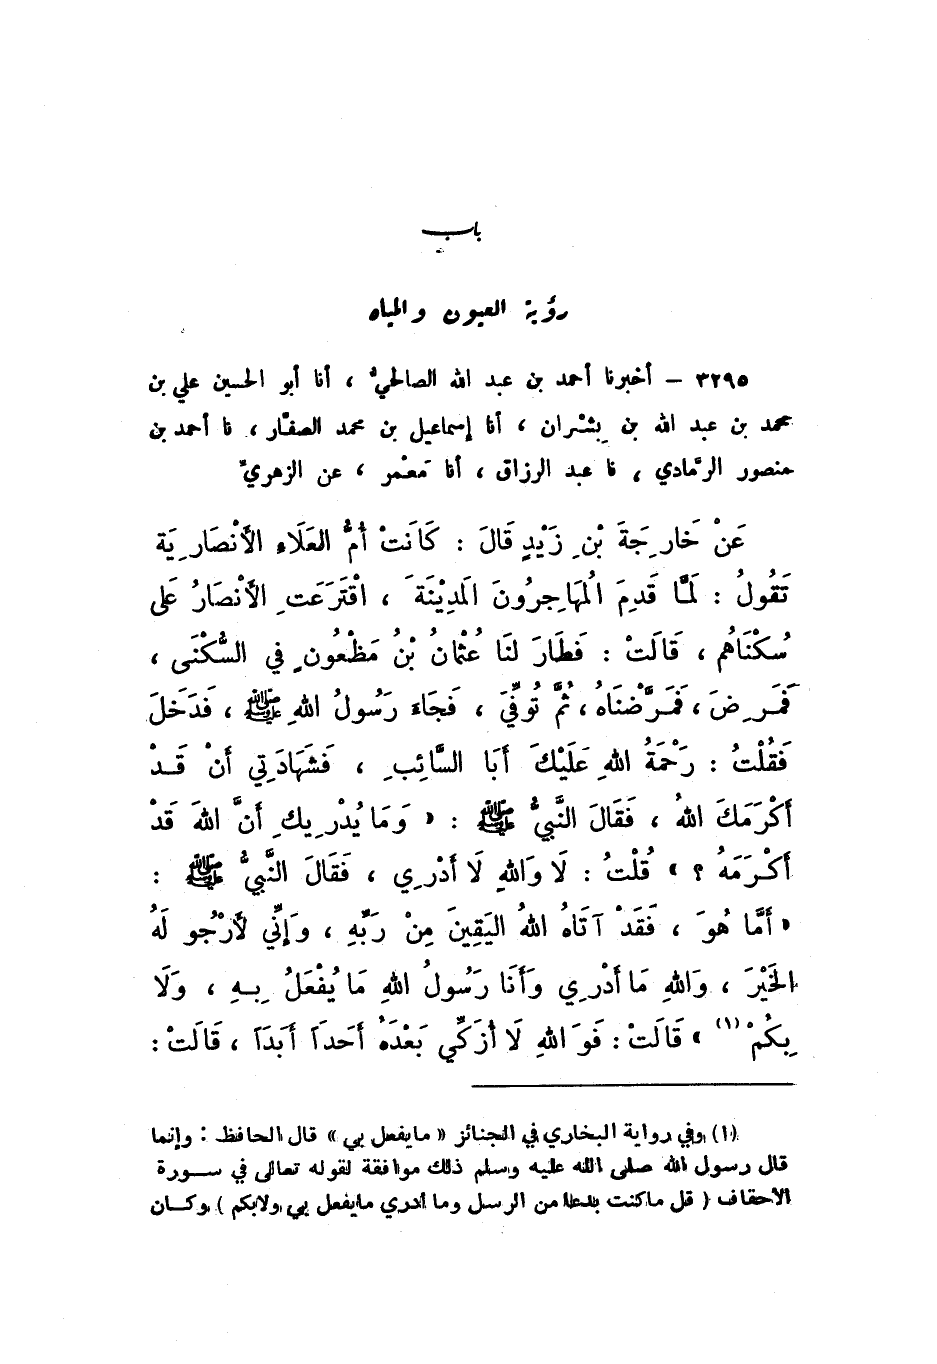 باب
رؤية العيون والمياه
٣٢٩٥ – أخبرنا أحمد بن عبد الله الصالحيُّ ، أنا أبو الحسين علي بن
محمد بن عبد الله بن بِشْران ، أنا إسماعيل بن محمد الصفّار ، نا أحمد بن
منصور الرَّمادي ، نا عبد الرزاق ، أنا مَعْمر ، عن الزهريِّ
عَنْ خَارِجَةَ بْنِ زَيْدٍ قَالَ : كَانَتْ أُمُّ العَلَاءِ الأَنْصَارِيَة
تَقُولُ : لَمَّا قَدِمَ المُهَاجِرُونَ المَدِيْنَةَ ، اقْتَرَعَتِ الأَنْصَارُ عَلى
سُكْنَاهُم ، قَالَتْ : فَطَارَ لنَا عُثْمَانُ بْنُ مَظْعُونٍ في السُّكْنَى ،
فَمَرِضَ ، فَمَرَّضْنَاهُ ، ثُمَّ تُوفِّيَ ، فَجَاءَ رَسُولُ اللهِ ﷺ ، فَدَخَلَ
فَقُلْتُ : رَحْمَةُ اللهِ عَلَيْكَ أَبَا السَّائِبِ ، فَشَهَادَتِي أَنْ قَدْ
أَكْرَمَكَ اللهُ ، فَقَالَ النَّبِيُّ ﷺ : « وَمَا يُدْرِيكِ أَنَّ اللهَ قَدْ
أَكْرَمَهُ ؟ » قُلْتُ : لَا وَاللهِ لَا أَدْرِي ، فَقَالَ النَّبِيُّ ﷺ :
« أَمَّا هُوَ ، فَقَدْ آتَاهُ اللهُ اليَقِينَ مِنْ رَبِّهِ ، وَإِنِّي لَأَرْجُو لَهُ
الخَيْرَ ، وَاللهِ مَا أَدْرِي وَأَنَا رَسُولُ اللهِ مَا يُفْعَلُ بِهِ ، وَلَا
بِكُمْ (١) » قَالَتْ : فَوَ اللهِ لَا أُزَكِّي بَعْدَهُ أَحَداً أَبَداً ، قَالَتْ :
(١) وفي رواية البخاري في الجنائز « مايفعل بي » قال الحافظ : وإنما
قال رسول الله صلى الله عليه وسلم ذلك موافقة لقوله تعالى في سورة
الاحقاف ( قل ماكنت بدعا من الرسل وما أدري مايفعل بي ولابكم ) وكان